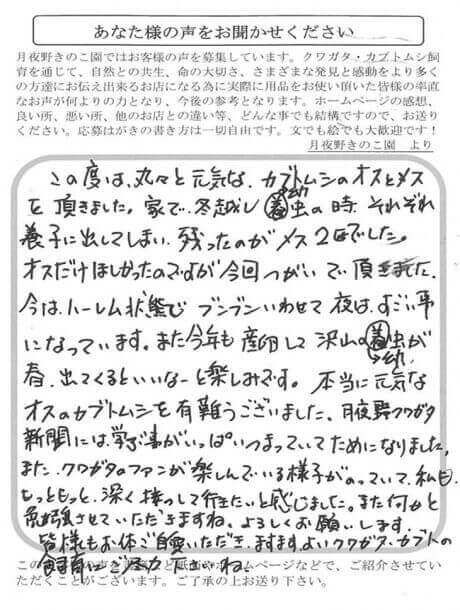 あなた様の声をお聞かせください
月夜野きのこ園ではお客様の声を募集しています。クワガタ・カブトムシ飼
育を通じて、自然との共生、命の大切さ、さまざまな発見と感動をより多く
の方達にお伝え出来るお店になる為に実際に用品をお使い頂いた皆様の率直
なお声が何よりの力となり、今後の参考となります。ホームページの感想、
良い所、悪い所、他のお店との違い等、どんな事でも結構ですので、お送り
ください。応募はがきの書き方は一切自由です。文でも絵でも大歓迎です！
月夜野きのこ園　より
この度は、丸々と元気な、カブトムシのオスとメス
を頂きました。家で、冬越し 虫の時、それぞれ
養子に出してしまい、残ったのがメス2匹でした。
オスだけほしかったのですが今回つがいで頂きました。
今は、ハーレム状態で ブンブンいわせて 夜は、すごい事
になっています。また今年も 産卵して 沢山の 虫が
春、出てくるといいなーと楽しみです。 本当に元気な
オスのカブトムシを有難うございました。月夜野クワガタ
新聞には、学ぶ事がいっぱいつまっていてためになりました。
また、クワガタのファンが楽しんでいる様子がのっていて、私も、
もっともっと、深く接して行きたいと感じました。また何かと
勉強させていただきますね。よろしくお願いします。
皆様もお体ご自愛いただき、ますますよいクワガタ・カブトの
飼育にご尽力下さいね。
ホームページなどで、ご紹介させてい
ただくことがございます。ご了承の上お送り下さい。